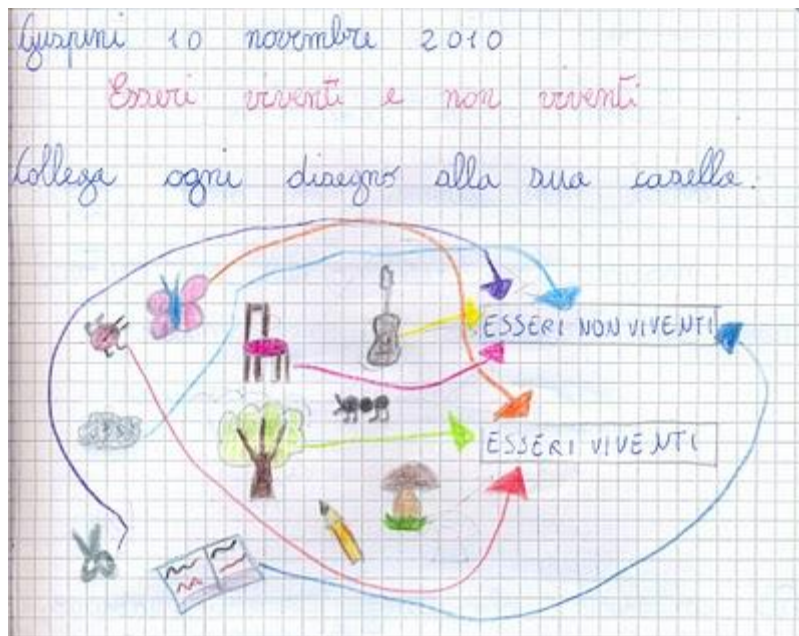 Guspini 10 novembre 2010
Esseri viventi e non viventi
Collega ogni disegno alla sua casella.
ESSERI NON VIVENTI
ESSERI VIVENTI